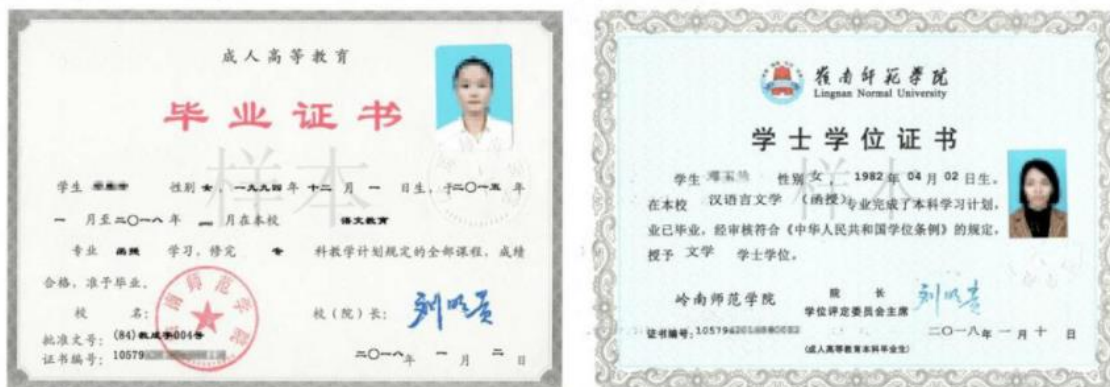 成人高等教育
毕业证书
样本
学生 性别 女，一九九四年 十二 月 一 日生，于二〇一五 年
一 月至二〇一八年 一 月在本校 语文教育
专业 函授 学习，修完 专 科教学计划规定的全部课程，成绩
合格，准予毕业。
校 名： 校（院）长：
批准文号：(84)教成字004号
证书编号：10579
二〇一八年 一 月 二 日
岭南师范学院
Lingnan Normal University
学士学位证书
样本
学生 性别 女，1982 年 04 月 02 日生。
在本校 汉语言文学 （函授）专业完成了本科学习计划，
业已毕业，经审核符合《中华人民共和国学位条例》的规定，
授予 文学 学士学位。
岭南师范学院 院 长
学位评定委员会主席
刘明贵
证书编号：105794
二〇一八年 一 月 十 日
(成人高等教育本科毕业生)